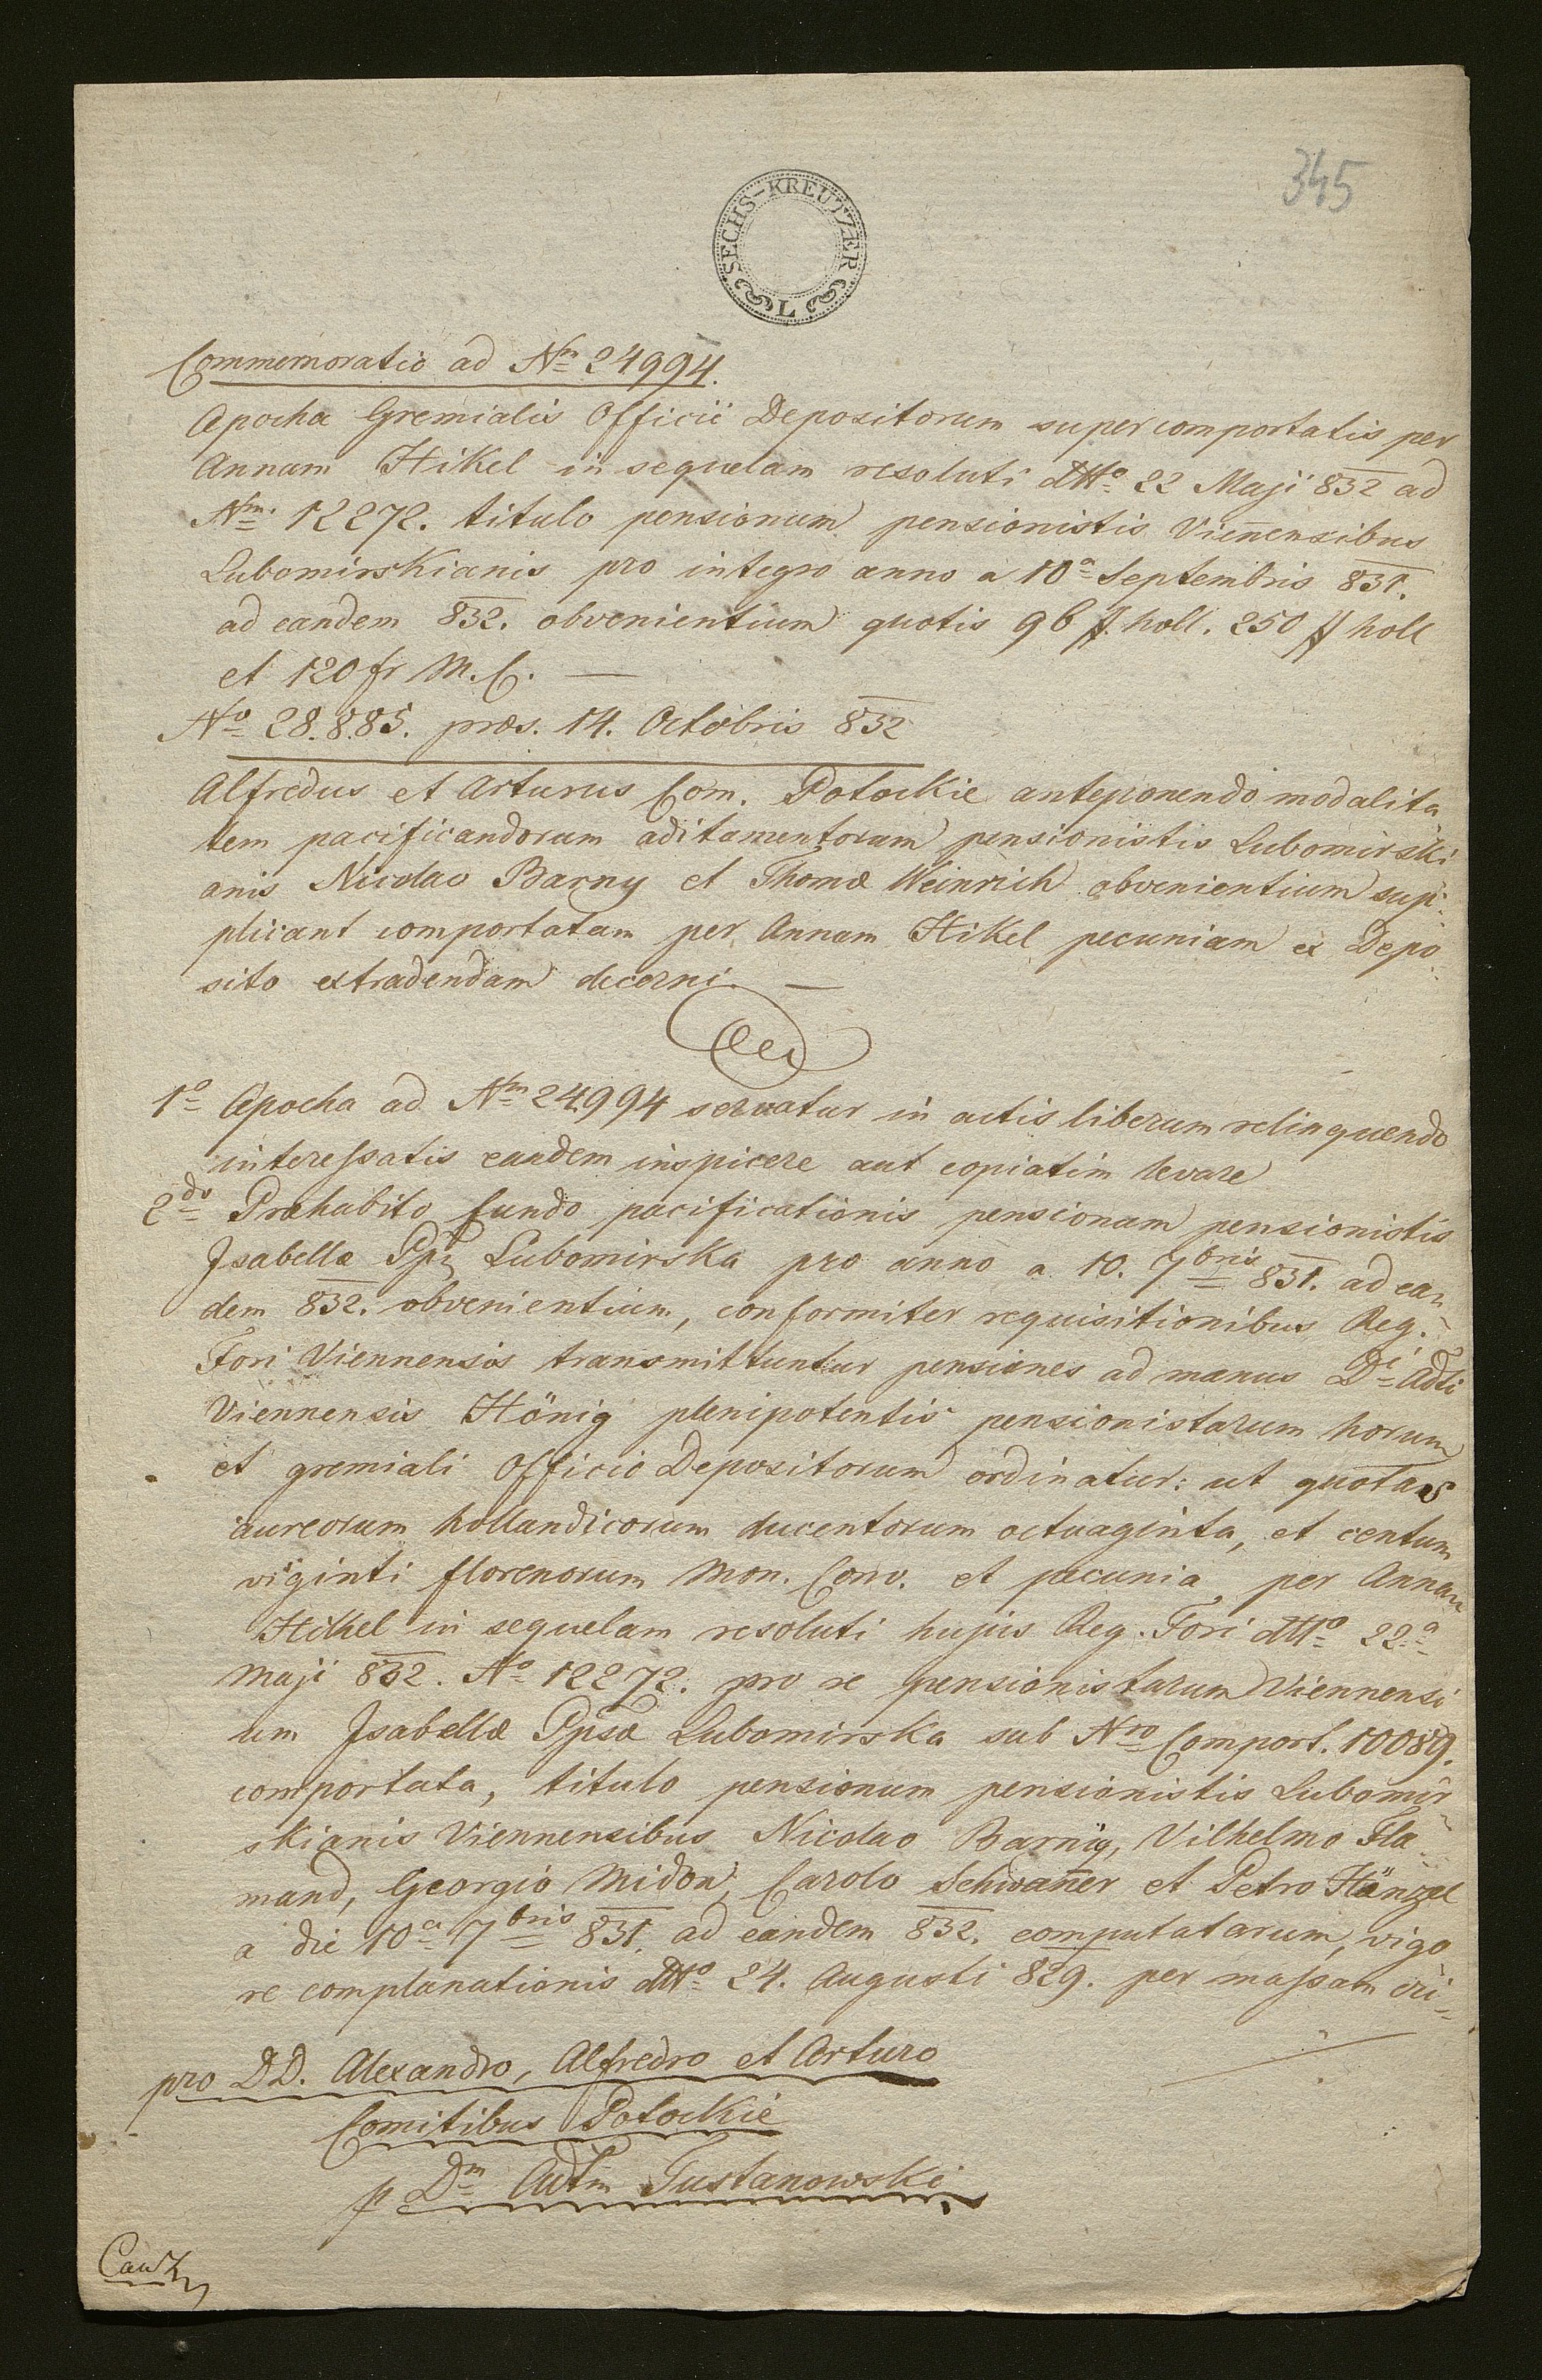 345
SECHS-KREUTZER
L
Commemoratio ad Nm 24994.
Apocha Gremialis Officii Depositorum super comportatis per
Annam Hikel in sequelam resoluti dtto 22 Maji 832 ad
Nm. 12272. titulo pensionum pensionistis Vieñensibus
Lubomirskianis pro integro anno a 10a Septembris 831.
ad eandem 832. obvenientium quotis 96 # holl. 250 # holl
et 120 fr M. C. —
No 28.885. præs. 14. Octobris 832
Alfredus et Arturus Com. Potockie anteponendo modalita
tem pacificandorum aditamentorum pensionistis Lubomirski
anis Nicolao Barny et Thomæ Weinrich obvenientium sup-
plicant comportatam per Annam Hikel pecuniam ex Depo-
sito extradendam decerni. —
1o Apocha ad Nm 24994 servatur in actis liberum relinquendo
interessatis eandem inspicere aut copiatim levare
2do Præhabito fundo pacificationis pensionum pensionistis
Isabellæ Lubomirska pro anno a 10. 7bris 831. ad ean-
dem 832. obvenientium, conformiter requisitionibus Reg.
Fori Viennensis transmittuntur pensiones ad manus Di Adti
Viennensis Hönig plenipotentis pensionistarum horum
et gremiali Officio Depositorum ordinatur: ut quotas
aureorum hollandicorum ducentorum octuaginta, et centum
viginti florenorum Mon. Conv. et pecunia per Annam
Hikel in sequelam resoluti hujus Reg. Fori dtto 22a
Maji 832. No 12272. pro re pensionistarum Viennensi
um Isabellæ Ppsæ Lubomirska sub Nro Comport. 10089.
comportata, titulo pensionum pensionistis Lubomir
skianis Viennensibus Nicolao Barnÿ, Vilhelmo Fla-
mand, Georgio Midon, Carolo Schwañer et Petro Hänzel
a die 10a 7bris 831. ad eandem 832. computatarum, vigo
re complanationis dtto 24. Augusti 829. per massam cri-
pro DD. Alexandro, Alfredro et Arturo
Comitibus Potockie
p Dm Adtm Tustanowski